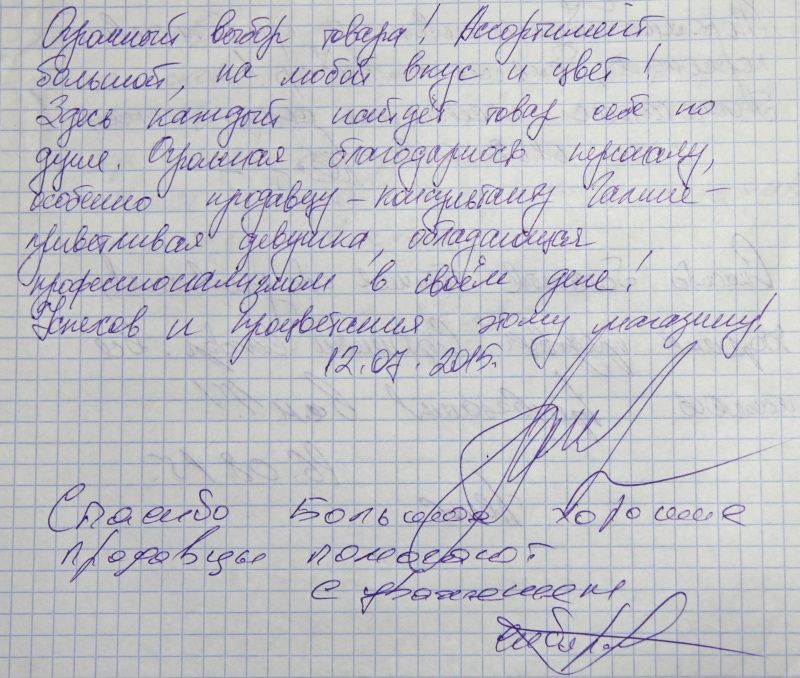 Огромный выбор товара! Ассортимент
большой, на любой вкус и цвет!
Здесь каждый найдёт товар себе по
душе. Огромная благодарность персоналу,
особенно продавцу-консультанту Галине -
приветливая девушка, обладающая
профессионализмом в своём деле!
Успехов и процветания этому магазину!
12.07.2015.
Спасибо Большое хорошие
продавцы помогают
с уважением